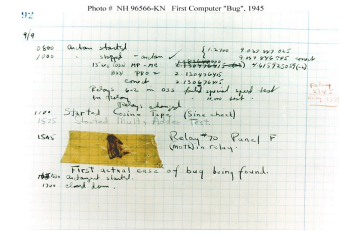 Photo # NH 96566-KN First Computer "Bug", 1945
92
9/9
0800 antan started
1000 " stopped - antan ✓
13" uc (032) MP - MC
(033) PRO 2 2.130476415
conect 2.130676415
Relays 6-2 in 033 failed special speed test
in relay
Relays changed
1100 Started Cosine Tape (Sine check)
1525 Started Multi Adder Test.
1545 Relay #70 Panel F
(moth) in relay.
First actual case of bug being found.
antangent started.
1700 closed down.